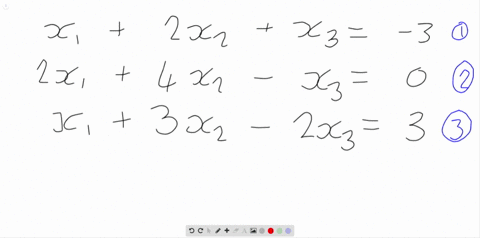 x₁ + 2x₂ + x₃ = -3 ①
2x₁ + 4x₂ - x₃ = 0 ②
x₁ + 3x₂ - 2x₃ = 3 ③